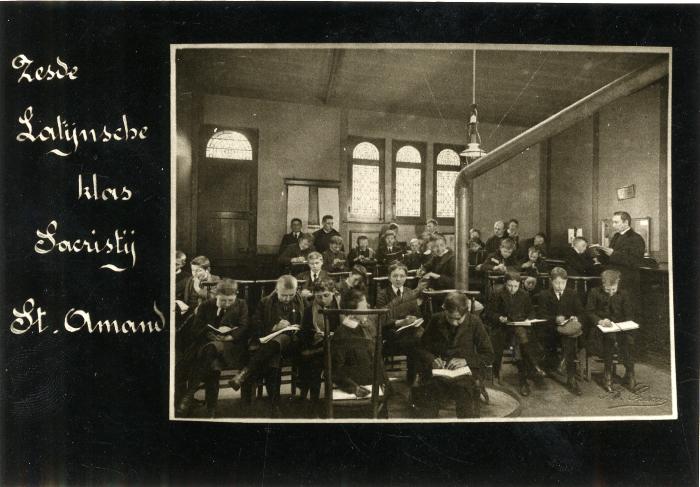 Zesde
Latijnsche
klas
Sacristij
St. Amand